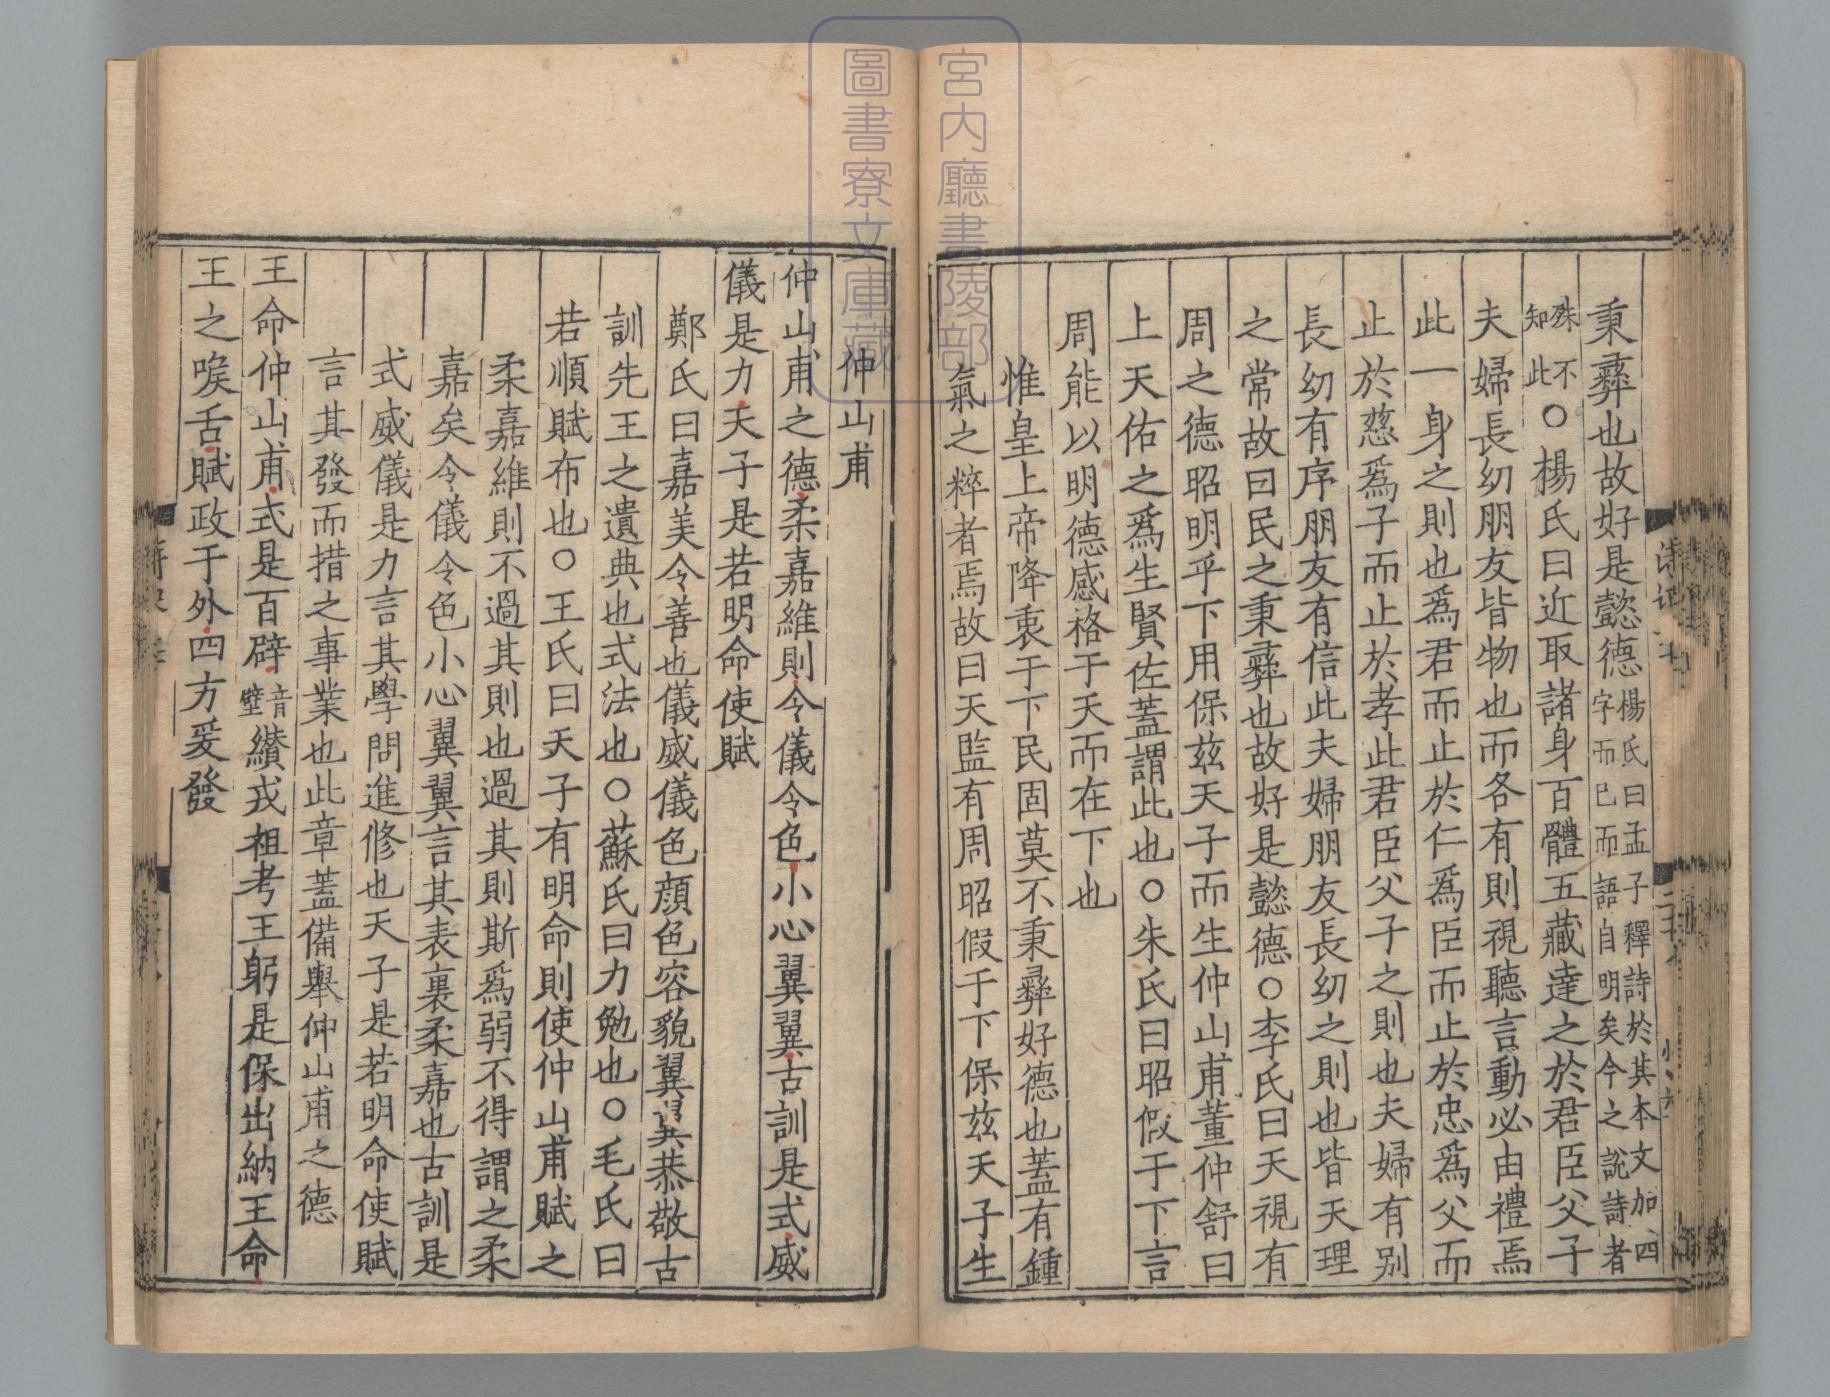 秉彝也故好是懿德楊氏曰孟子釋詩於其本文加四字而已而語自明矣今之說詩者
殊不知此○楊氏曰近取諸身百體五藏達之於君臣父子
夫婦長幼朋友皆物也而各有則視聽言動必由禮焉
此一身之則也爲君而止於仁爲臣而止於忠爲父而
止於慈爲子而止於孝此君臣父子之則也夫婦有别
長幼有序朋友有信此夫婦朋友長幼之則也皆天理
之常故曰民之秉彝也故好是懿德○李氏曰天視有
周之德昭明乎下用保兹天子而生仲山甫董仲舒曰
上天佑之爲生賢佐蓋謂此也○朱氏曰昭假于下言
周能以明德感格于天而在下也
惟皇上帝降衷于下民固莫不秉彝好德也蓋有鍾
氣之粹者焉故曰天監有周昭假于下保兹天子生
仲山甫
仲山甫之德柔嘉維則令儀令色小心翼翼古訓是式威
儀是力天子是若明命使賦
鄭氏曰嘉美令善也儀威儀色顔色容貌翼翼恭敬古
訓先王之遺典也式法也○蘇氏曰力勉也○毛氏曰
若順賦布也○王氏曰天子有明命則使仲山甫賦之
柔嘉維則不過其則也過其則斯爲弱不得謂之柔
嘉矣令儀令色小心翼翼言其表裏柔嘉也古訓是
式威儀是力言其學問進修也天子是若明命使賦
言其發而措之事業也此章蓋備舉仲山甫之德
王命仲山甫式是百辟音璧纘戎祖考王躬是保出納王命
王之喉舌賦政于外四方爰發
宮内廳書陵部
圖書寮文庫藏